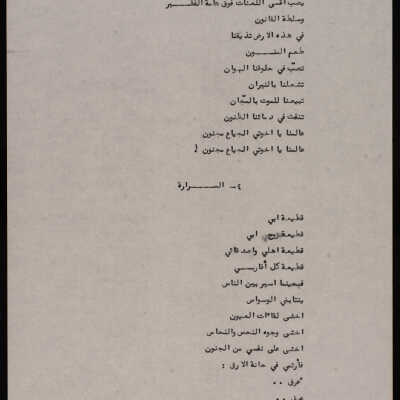 يصب أقسى اللعنات فوق هامة الفقير
وسلطة القانون
في هذه الارض تذيقنا
طعم المنون
تصب في حلوقنا الهوان
تشعلنا بالنيران
تبيعنا للموت بالمجان
تنفث في دمائنا الظنون
عالمنا يا اخوتي الجياع مجنون
عالمنا يا اخوتي الجياع مجنون !
٤- المرارة
قطيعة ابي
قطيعة زوج ابي
قطيعة اهلي واصدقائي
قطيعة كل أقاربي
فحينما اسير بين الناس
ينتابني الوسواس
اخشى لقاءات العيون
اخشى وجوه النحس والنحاس
اخشى على نفسي من الجنون
فأرتمي في حانة الارق :
عرق ..
عرق ..